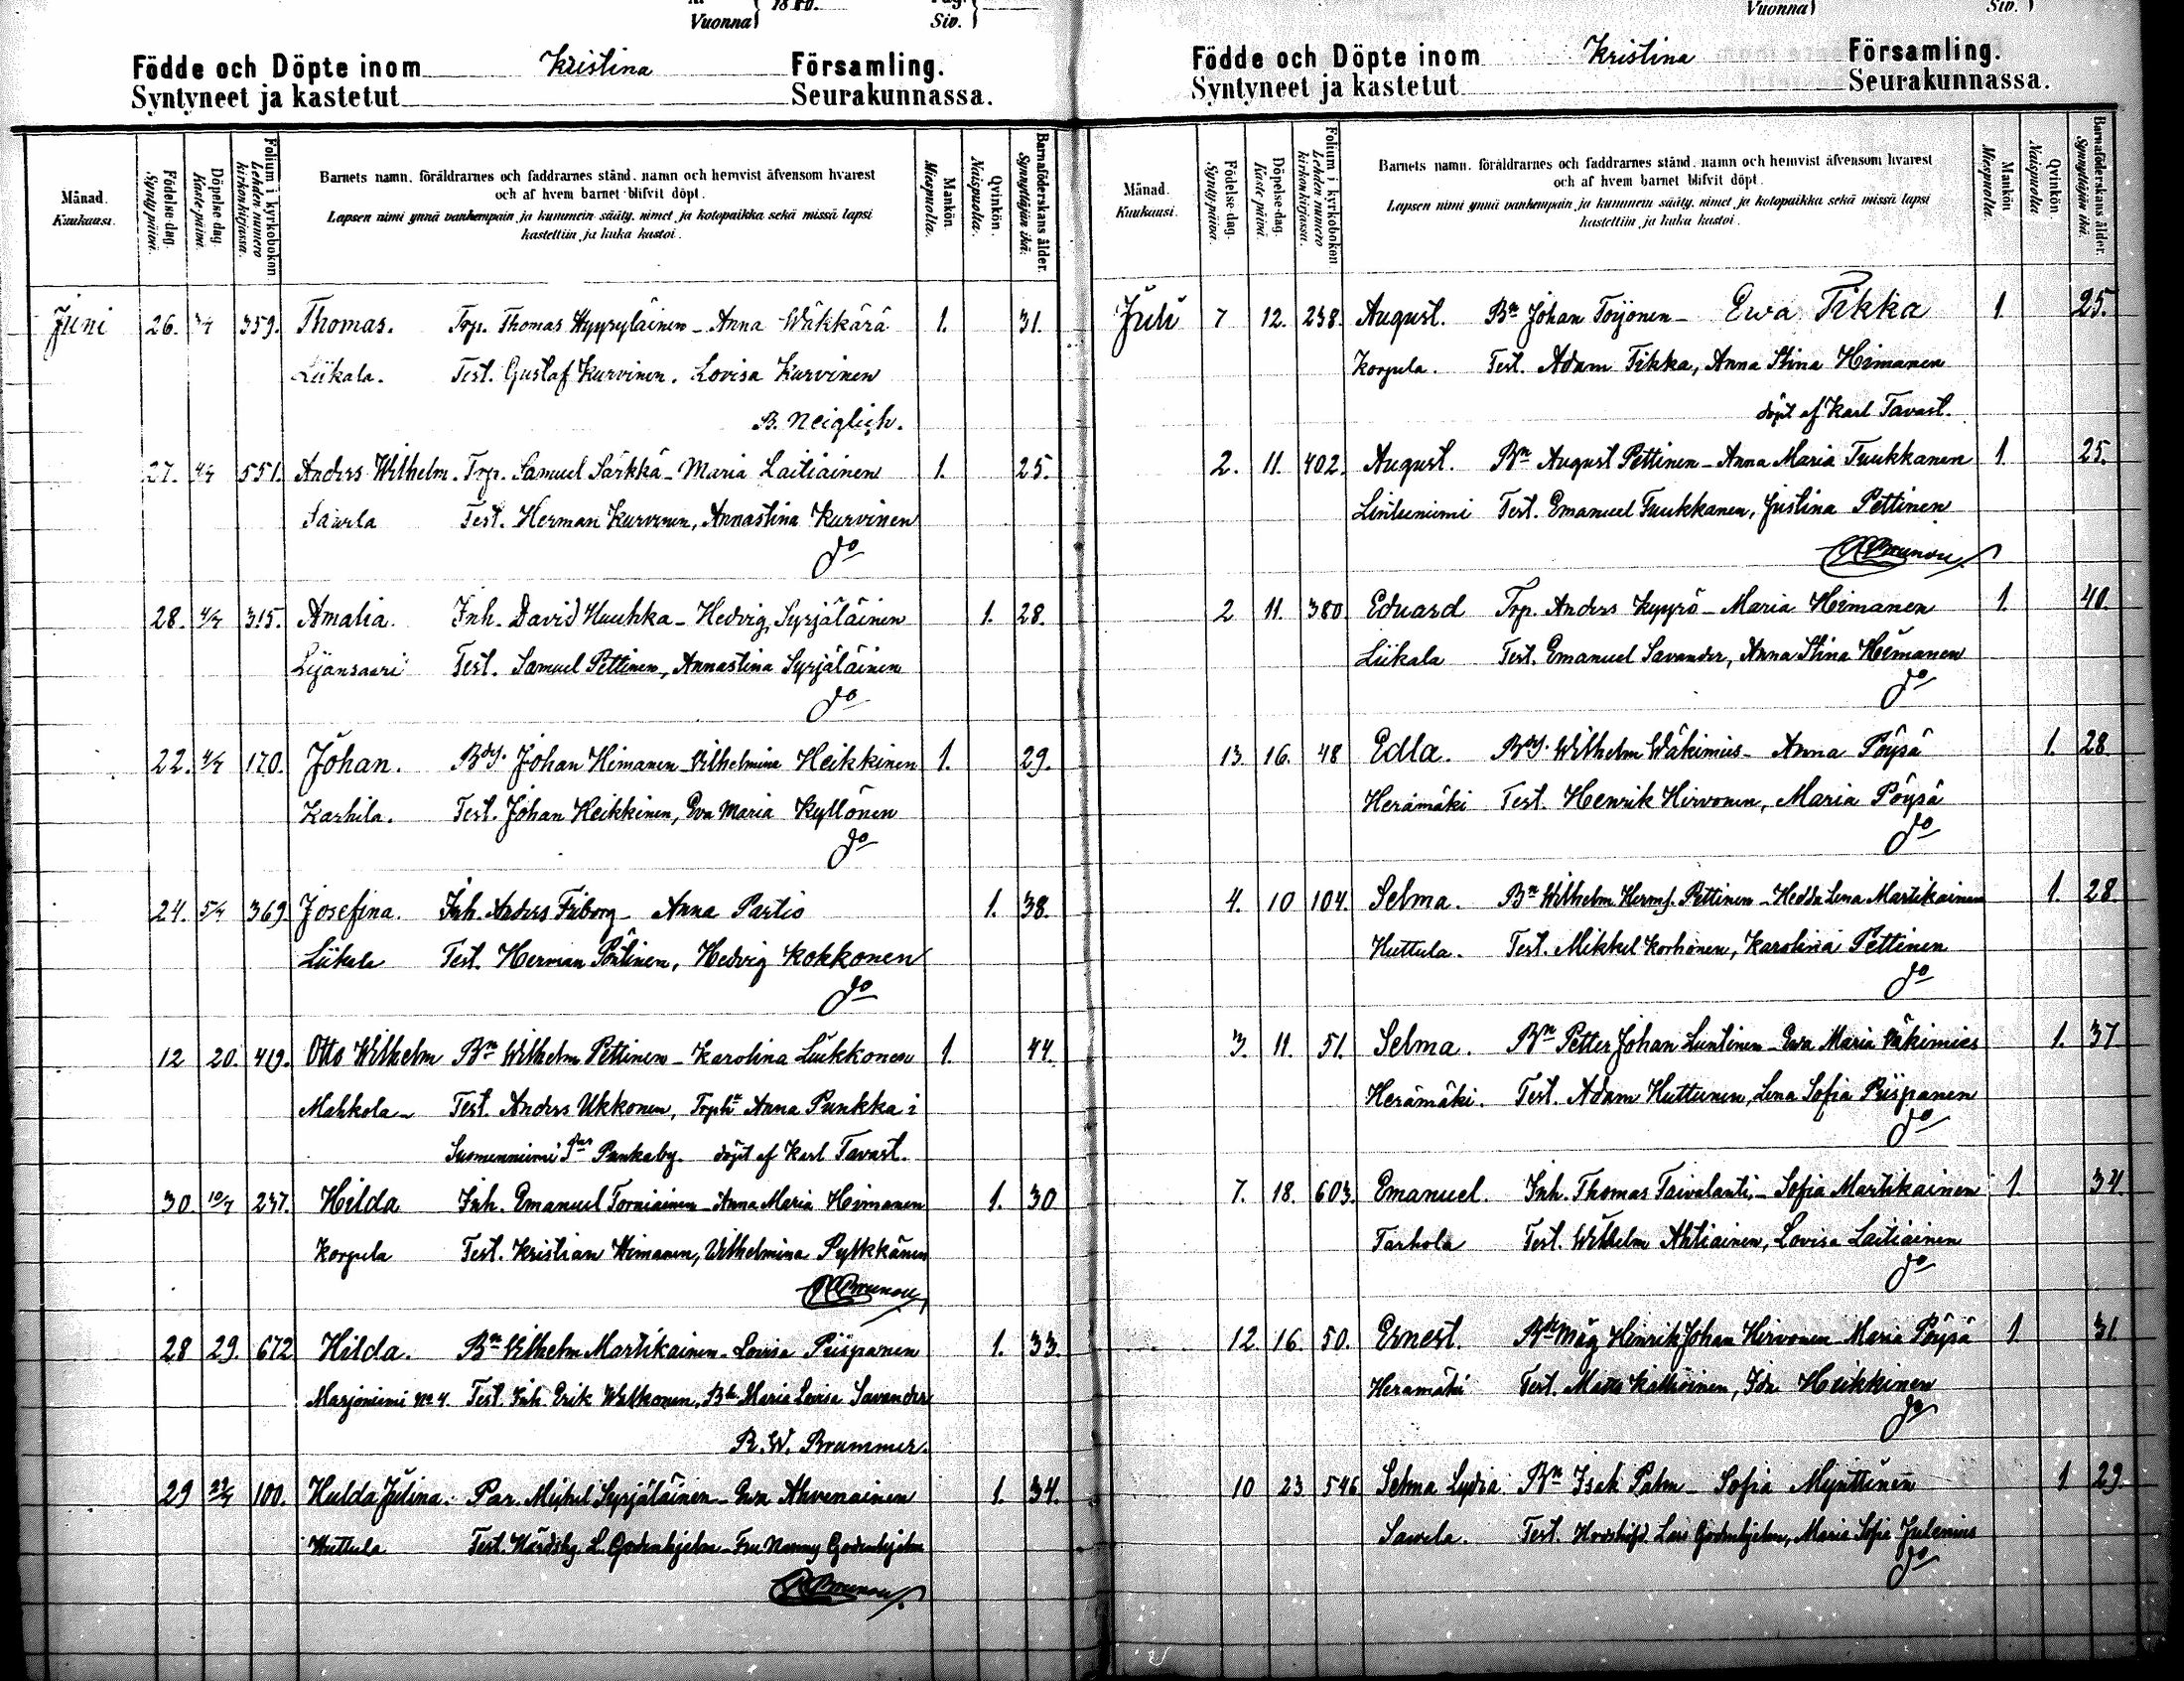 Vuonna 1880. Siv.
Födde och Döpte inom Kristina Församling.
Syntyneet ja kastetut Seurakunnassa.
Månad. Kuukausi.
Födelse-dag. Synty-päivä.
Döpelse-dag. Kaste-päivä.
Folium i kyrkobokon Lehden numero kirkonkirjassa.
Barnets namn, föräldrarnes och faddrarnes stånd, namn och hemvist äfvensom hvarest
och af hvem barnet blifvit döpt.
Lapsen nimi ynnä vanhempain ja kummein sääty, nimet ja kotopaikka sekä missä lapsi
kastettiin ja kuka kastoi.
Mankön. Miespuolta.
Qvinkön. Naispuolta.
Barnaföderskans ålder. Synnyttäjän ikä.
Juni 26. 3/7 359. Thomas. Trp. Thomas Hyyryläinen - Anna Wäkkärä 1. 31.
Liikala. Test. Gustaf Kurvinen, Lovisa Kurvinen
B. Neiglich.
27. 4/7 551. Anders Wilhelm. Trp. Samuel Särkkä - Maria Laitiainen 1. 25.
Saurla Test. Herman Kurvinen, Annastina Kurvinen
do
28. 4/7 315. Amalia. Inh. David Huuhka - Hedvig Syrjäläinen 1. 28.
Lyänsaari Test. Samuel Pettinen, Annastina Syrjäläinen
do
22. 4/7 170. Johan. Bdy. Johan Himanen - Vilhelmina Heikkinen 1. 29.
Karhila. Test. Johan Heikkinen, Eva Maria Kyllönen
do
24. 5/7 369 Josefina. Inh. Anders Friborg - Anna Partio 1. 38.
Liikala Test. Herman Pöntinen, Hedvig Kokkonen
do
12 20. 419. Otto Wilhelm Bn Wilhelm Pettinen - Karolina Liukkonen 1. 44.
Mahkola - Test. Anders Ukkonen, Anna Punkka i
Suomenniemi Pankaby. döpt af Karl Tavast.
30 10/7 237. Hilda Inh. Emanuel Torniainen - Anna Maria Himanen 1. 30
Korpula Test. Kristian Himanen, Wilhelmina Pylkkänen
Brunou
28 29. 672 Hilda. Bn Vilhelm Martikainen - Lovisa Piispanen 1. 33.
Marjoniemi No 4. Test. Inh. Erik Walkonen, Maria Lovisa Savander
R. W. Brummer.
29 100. Hulda Julina. Par. Michel Syrjäläinen - Eva Ahvenainen 1. 34.
Huttula Test. Härdshg L. Godenhjelm - Fru Nanny Godenhjelm
Brunou.
Vuonna Siv.
Födde och Döpte inom Kristina Församling.
Syntyneet ja kastetut Seurakunnassa.
Månad. Kuukausi.
Födelse-dag. Synty-päivä.
Döpelse-dag. Kaste-päivä.
Folium i kyrkobokon Lehden numero kirkonkirjassa.
Barnets namn, föräldrarnes och faddrarnes stånd, namn och hemvist äfvensom hvarest
och af hvem barnet blifvit döpt.
Lapsen nimi ynnä vanhempain ja kummein sääty, nimet ja kotopaikka sekä missä lapsi
kastettiin ja kuka kastoi.
Mankön Miespuolta.
Qvinkön Naispuolta
Barnaföderskans ålder. Synnyttäjän ikä.
Juli 7 12. 238. August. Bn Johan Toijonen - Ewa Tikka 1. 25.
Korpula. Test. Adam Tikka, Anna Stina Himanen
döpt af Karl Tavast.
2. 11. 402. August. Bn August Pettinen - Anna Maria Tuukkanen 1. 25.
Linteniemi Test. Emanuel Tuukkanen, Justina Pettinen
Brunou
2 11. 380 Eduard Trp. Anders Kyyrö - Maria Himanen 1. 40.
Liikala Test. Emanuel Savander, Anna Stina Himanen
do
13. 16. 48 Edla. Bdy. Wilhelm Wäkimies - Anna Pöysä 1. 28
Herämäki Test. Henrik Hirvonen, Maria Pöysä
do
4. 10 104. Selma. Bn Wilhelm Hermf. Pettinen - Hedda Lena Martikainen 1. 28.
Huttula. Test. Mikkel Korhonen, Karolina Pettinen
do
3. 11. 51. Selma. Bn Petter Johan Luntinen - Ewa Maria Väkimies 1. 37.
Herämäki. Test. Adam Huttunen, Lena Sofia Piispanen
do
7. 18. 603. Emanuel. Inh. Thomas Taivalanti - Sofia Martikainen 1. 34.
Tarhola Test. Wilhelm Ahtiainen, Lovisa Laitiainen
do
12. 16. 50. Ernest. Bdemåg Hinrik Johan Hirvonen - Maria Pöysä 1. 31.
Heramäki Test. Matts Kälviäinen, Ida Heikkinen
do
10 23 546 Selma Lydia Bn Isak Palm - Sofia Mynttinen 1 29.
Sawela. Test. Lars Godenhjelm, Maria Sofia Julenius
do